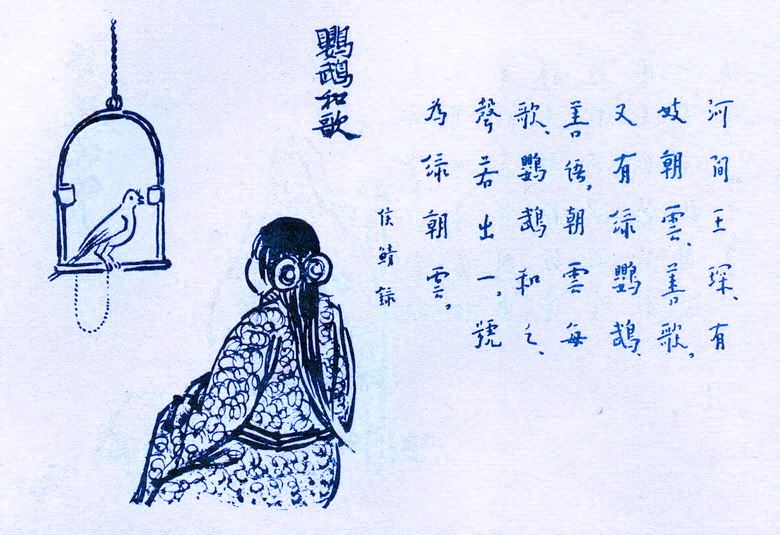 鸚鵡和歌
河間王琛、有
妓朝雲、善歌。
又有綠鸚鵡、
善語。朝雲每
歌、鸚鵡和之、
聲若出一。號
為綠朝雲。
侯鯖錄